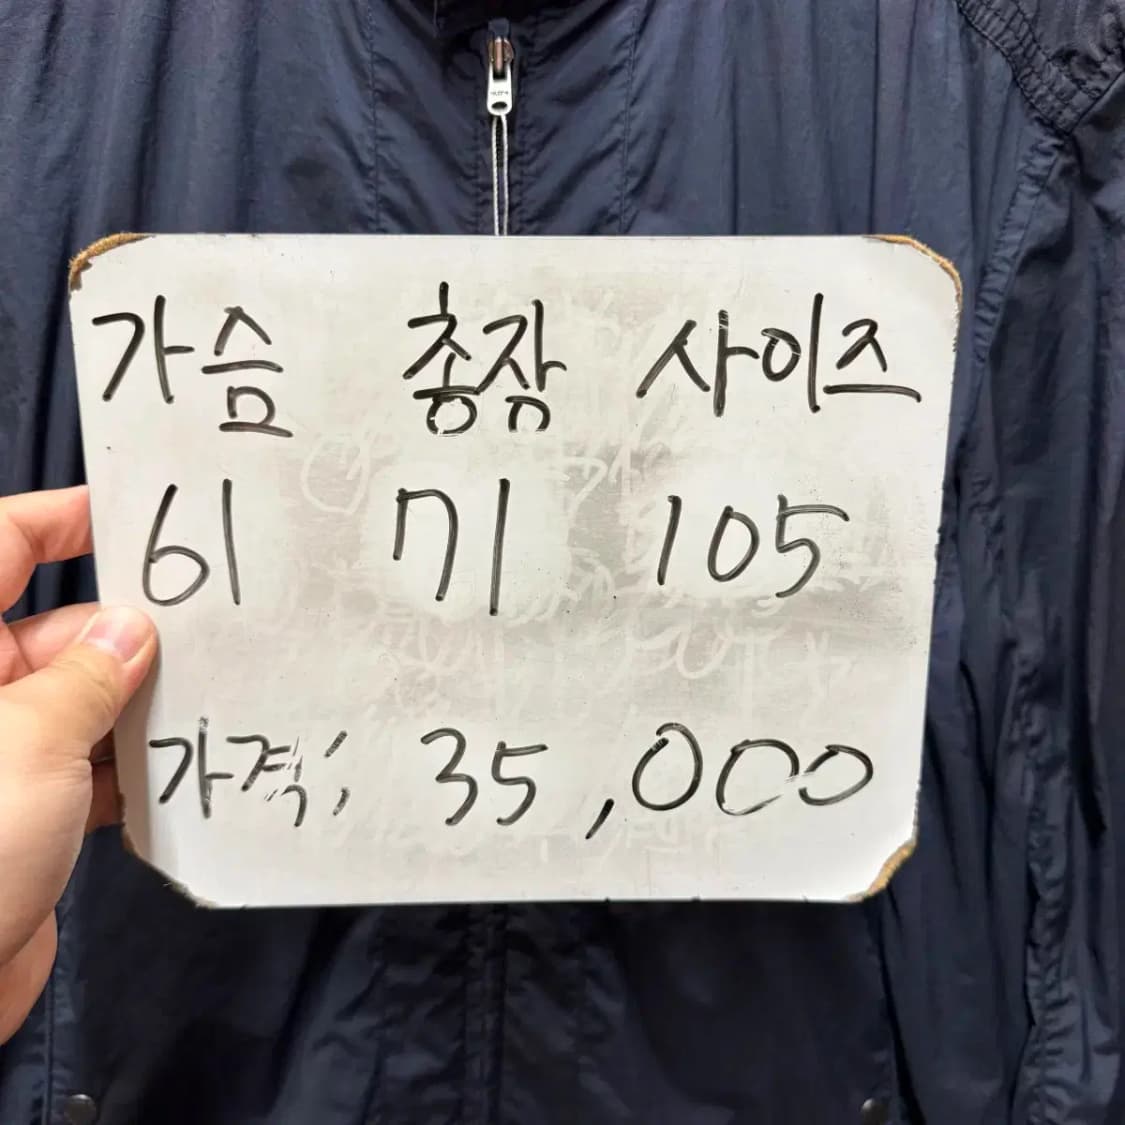 가슴 총장 사이즈
61 71 105
가격; 35,000